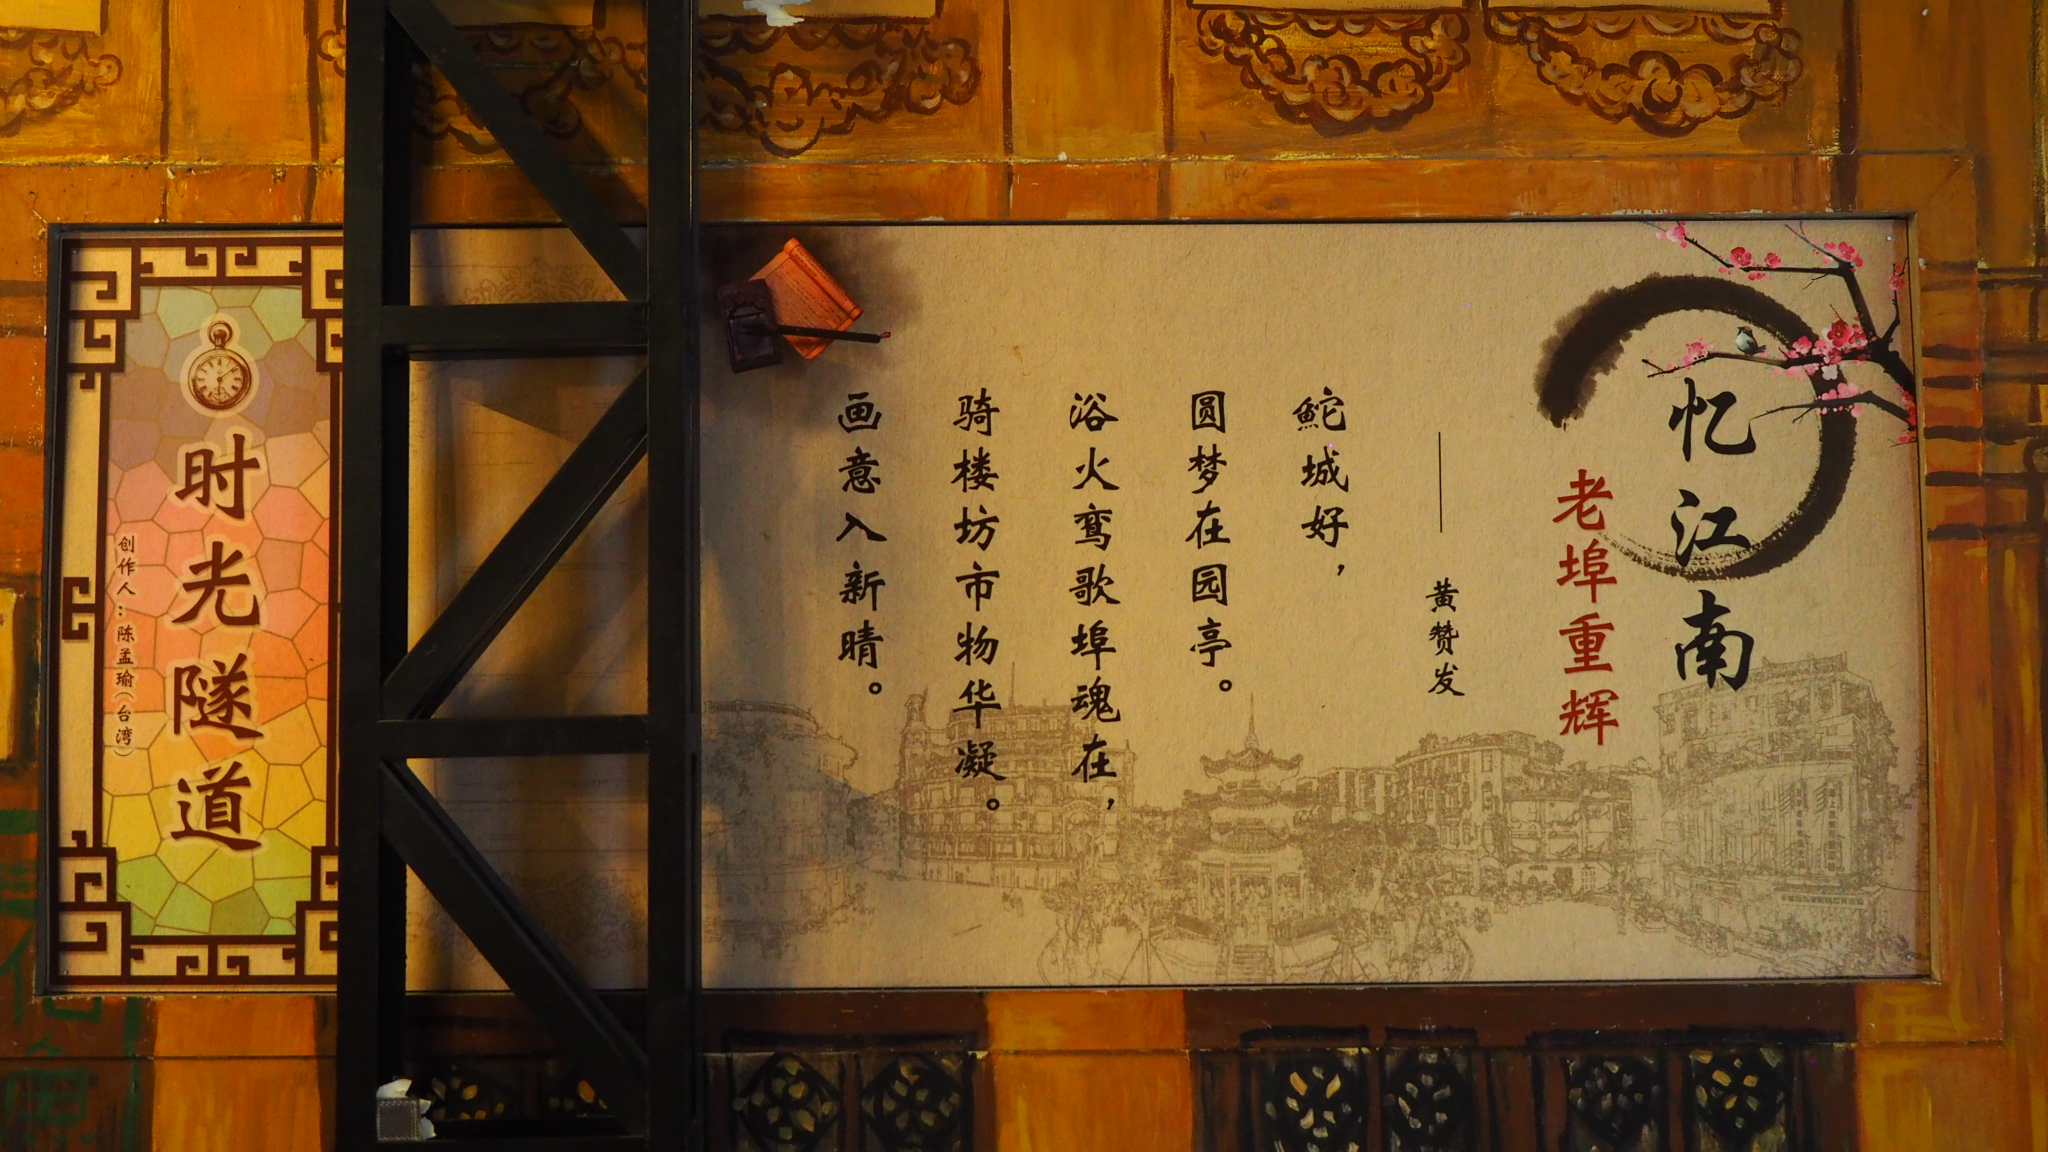 忆江南
老埠重辉
——黄赞发
鮀城好，
圆梦在园亭。
浴火鸾歌埠魂在，
骑楼坊市物华凝。
画意入新晴。
时光隧道
创作人：陈孟瑜（台湾）